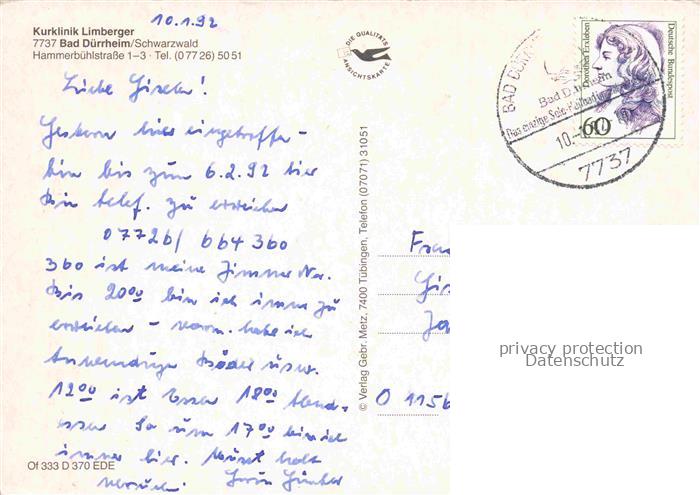 10.1.92
Kurklinik Limberger
7737 Bad Dürrheim/Schwarzwald
Hammerbühlstraße 1–3 · Tel. (0 77 26) 50 51
DIE QUALITÄTS
ANSICHTSKARTE
Dorothea Erxleben
Deutsche Bundespost
60
BAD DÜRR
Bad Dürrheim
Das einzige Sole-Heilbad
10.
7737
Liebe Gisela!
Gestern hier eingetroffen –
bin bis zum 6.2.92 hier
Bin telef. zu erreichen
07726/ 664 360
360 ist meine Zimmer Nr.
Bis 20⁰⁰ bin ich immer zu
erreichen – vorm. habe ich
Anwendungen Bäder usw.
12⁰⁰ ist Essen 18⁰⁰ Abend-
essen So um 17⁰⁰ bin ich
immer hier. Mußt halt
versuchen! Günter
Frau
O 1156
© Verlag Gebr. Metz, 7400 Tübingen, Telefon (07071) 31051
Of 333 D 370 EDE
privacy protection
Datenschutz